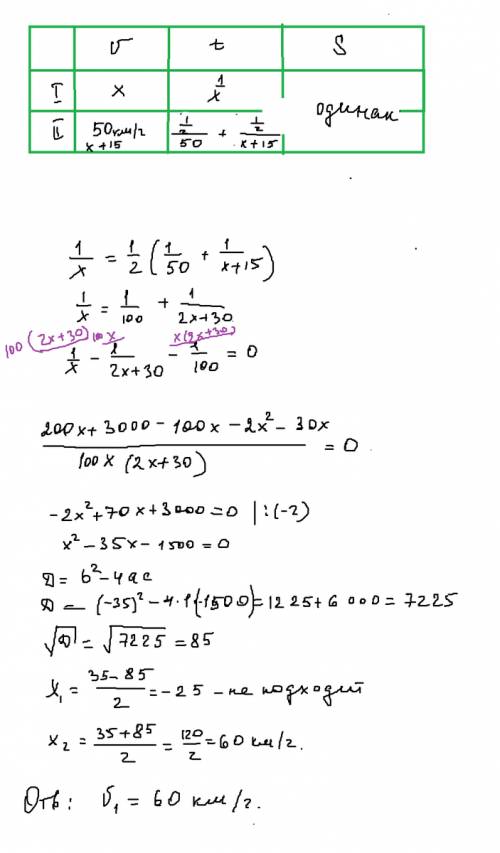 υ t S
I x 1/x одинак
II 50 км/г x+15 (1/2)/50 + (1/2)/(x+15)
1/x = 1/2 (1/50 + 1/(x+15))
1/x = 1/100 + 1/(2x+30)
100 (2x+30) 100x x(2x+30)
1/x - 1/(2x+30) - 1/100 = 0
(200x + 3000 - 100x - 2x² - 30x)/(100x (2x+30)) = 0
-2x² + 70x + 3000 = 0 | :(-2)
x² - 35x - 1500 = 0
D = b² - 4ac
D = (-35)² - 4·1(-1500) = 1225 + 6000 = 7225
√D = √7225 = 85
x₁ = (35-85)/2 = -25 - не подходит
x₂ = (35+85)/2 = 120/2 = 60 км/г.
Отв: υ₁ = 60 км/г.